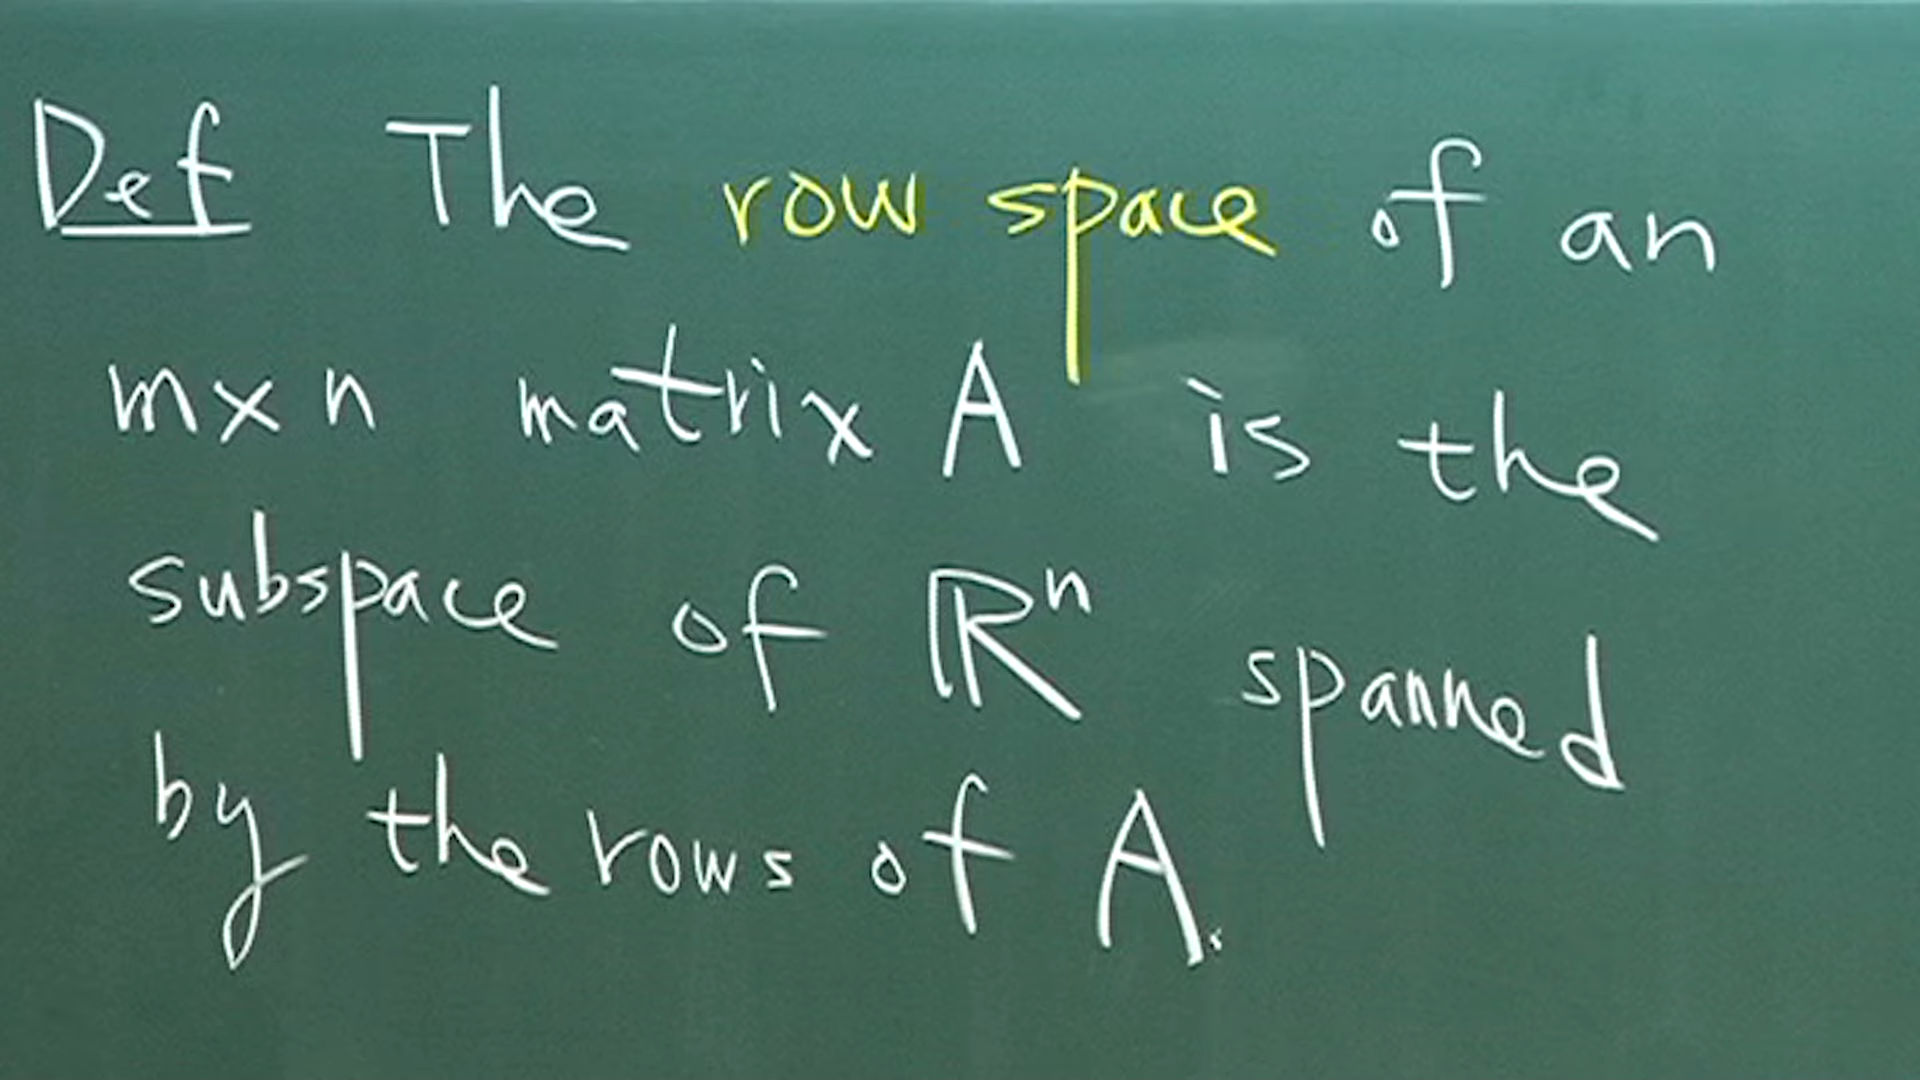 Def The row space of an
m×n matrix A is the
subspace of ℝⁿ spanned
by the rows of A.